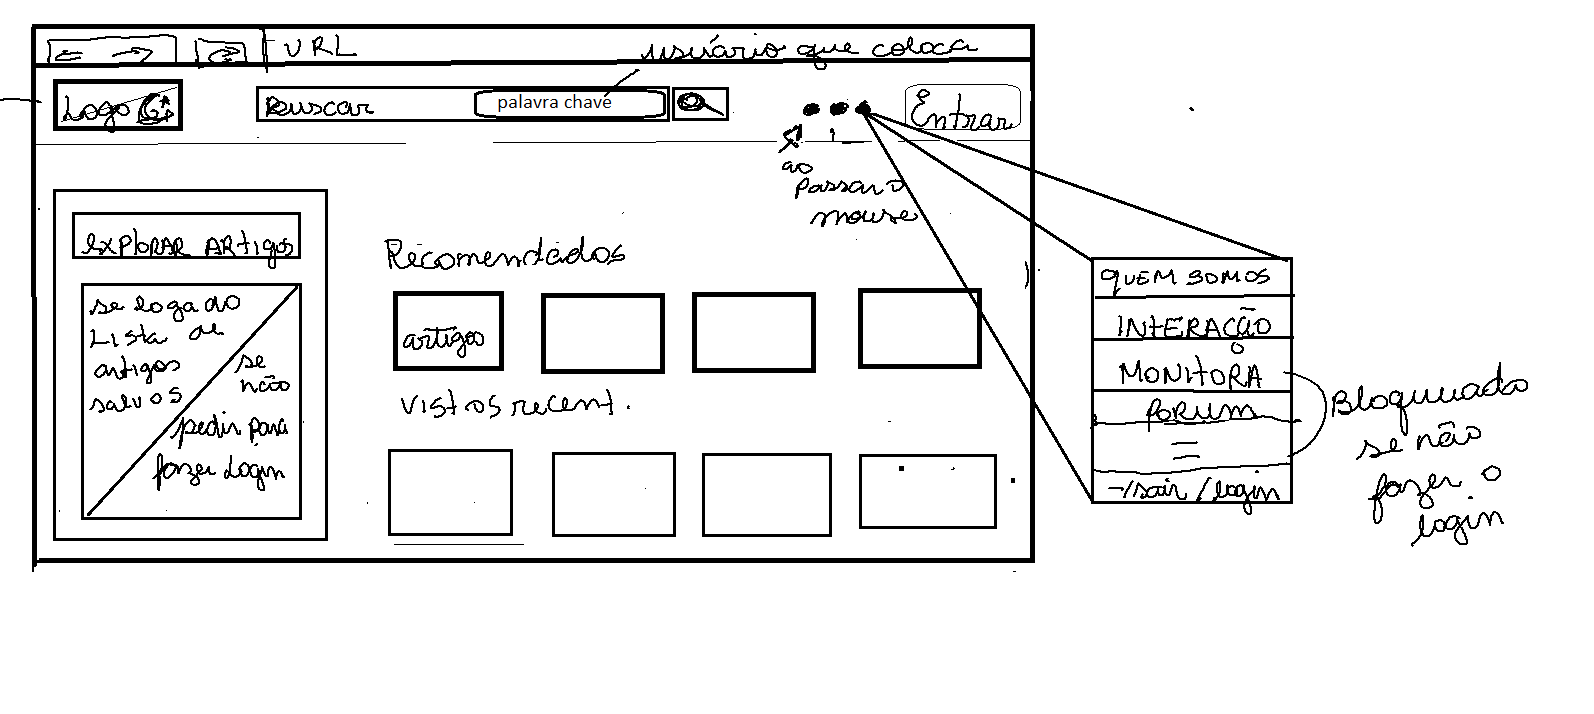 URL
usuário que coloca
Logo
Buscar
palavra chave
Entrar
ao
passar o
mouse
EXPLORAR ARtigos
se logado
Lista de
artigos
salvos
se
não
pedir para
fazer Login
Recomendados
artigos
Vistos recent.
QUEM SOMOS
INTERAÇÃO
MONITORA
FORUM
sair / login
Bloqueado
se não
fazer o
login